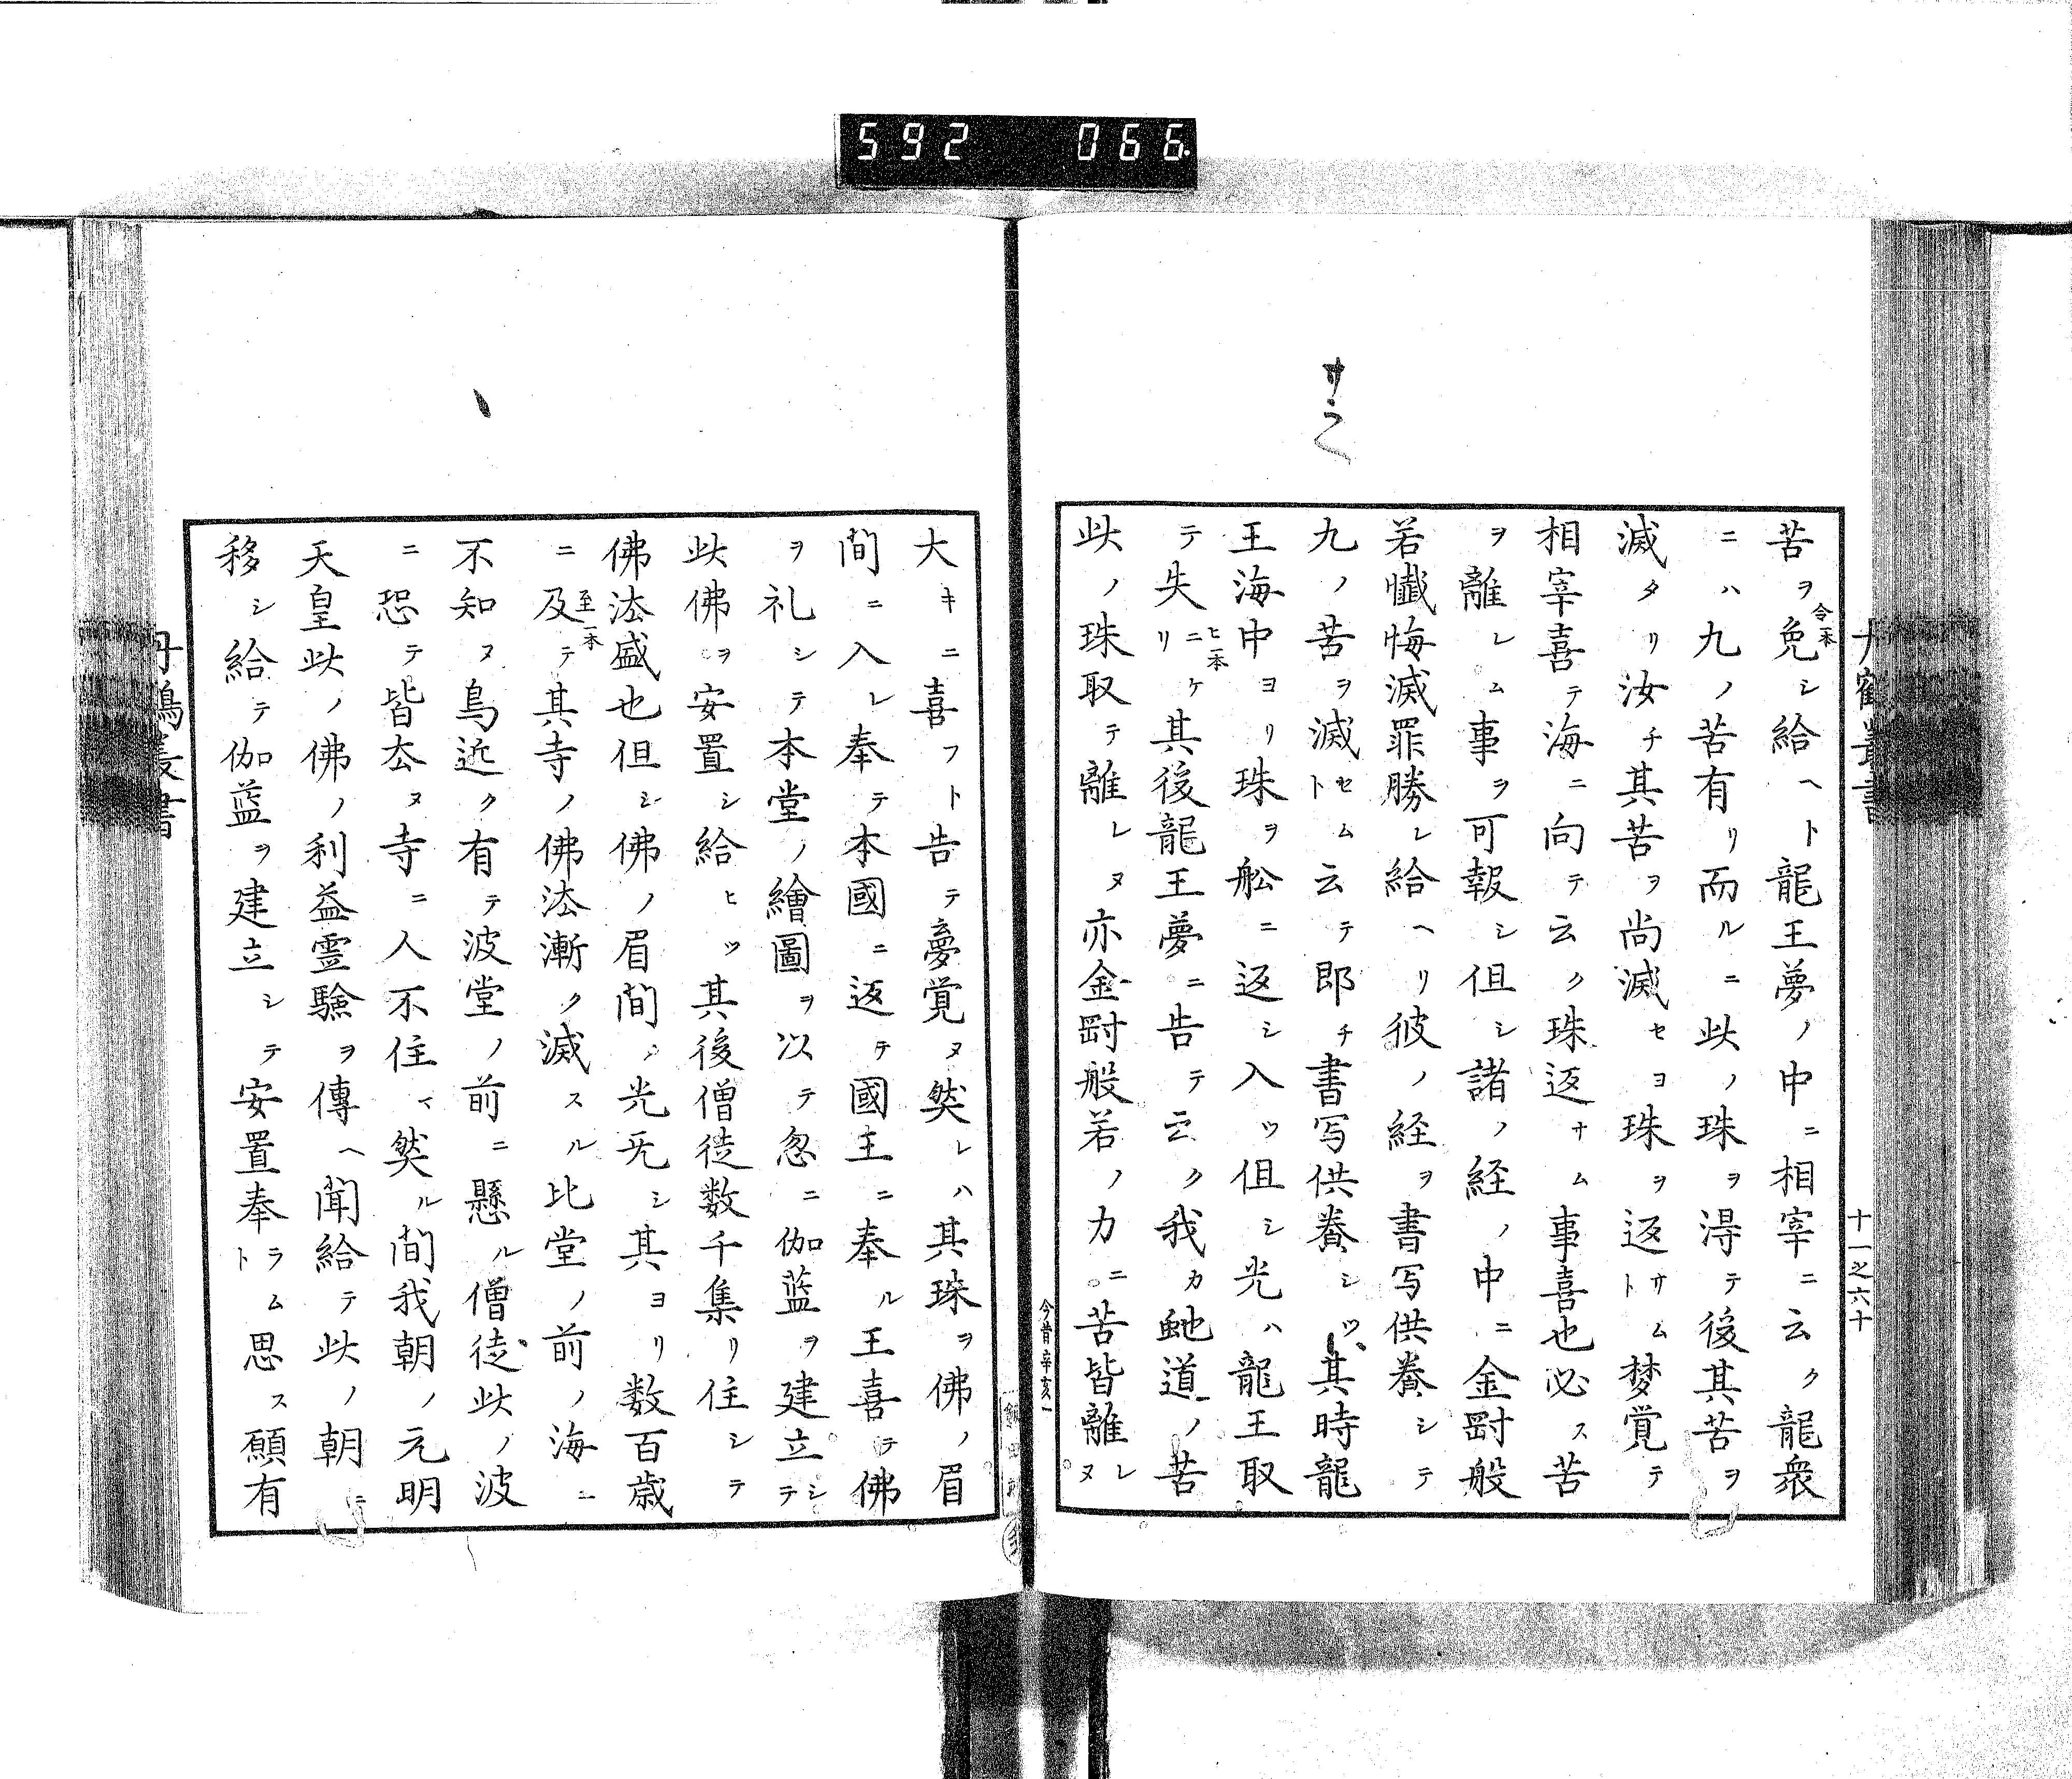 592 066
丹鶴叢書
十一之六十
苦ヲ免シ給ヘト龍王夢ノ中ニ相宰ニ云ク龍衆
令一本
ニハ九ノ苦有リ而ルニ此ノ珠ヲ淂テ後其苦ヲ
滅タリ汝チ其苦ヲ尚滅セヨ珠ヲ返サムト梦覚テ
相宰喜テ海ニ向テ云ク珠返ナム事喜也必ス苦
ヲ離レム事ヲ可報シ但シ諸ノ経ノ中ニ金剛般
若懺悔滅罪勝レ給ヘリ彼ノ経ヲ書写供養シテ
九ノ苦ヲ滅セムト云テ即チ書写供養シツ其時龍
王海中ヨリ珠ヲ舩ニ返シ入ツ但シ光ハ龍王取
テ失リニケ其後龍王夢ニ告テ云ク我カ虵道ノ苦
ヒ一本
此ノ珠取テ離レヌ亦金剛般若ノ力ニ苦皆離レヌ
今昔 辛亥一
大キニ喜フト告テ夢覚ヌ然レハ其珠ヲ佛ノ眉
間ニ入レ奉テ本國ニ返テ國主ニ奉ル王喜テ佛
ヲ礼シテ本堂ノ繪圖ヲ以テ忽ニ伽藍ヲ建立シテ
此佛ヲ安置シ給ヒツ其後僧徒数千集リ住シテ
佛法盛也但シ佛ノ眉間ノ光旡シ其ヨリ数百歳
ニ及テ其寺ノ佛法漸ク滅スル比堂ノ前ノ海ニ
至一本
不知ヌ鳥近ク有テ波堂ノ前ニ懸ル僧徒此ノ波
ニ恐テ皆去ヌ寺ニ人不住マ然ル間我朝ノ元明
天皇此ノ佛ノ利益霊驗ヲ傳ヘ聞給テ此ノ朝ニ
移シ給テ伽藍ヲ建立シテ安置奉ラムト思ス願有
丹鶴叢書